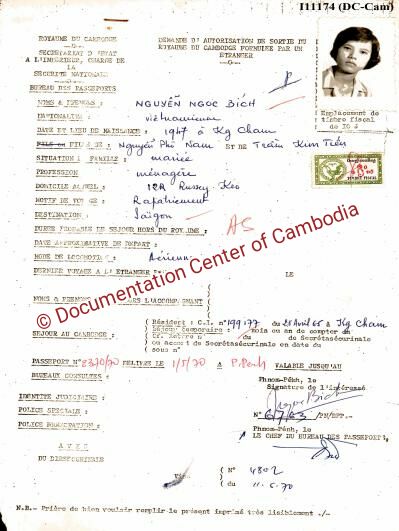 I11174 (DC-Cam)
ROYAUME DU CAMBODGE
SECRETARIAT D'ETAT
A L'INTERIEUR, CHARGE DE
LA
SECURITE NATIONALE
BUREAU DES PASSEPORTS
DEMANDE D'AUTORISATION DE SORTIE DU
ROYAUME DU CAMBODGE FORMULEE PAR UN
ETRANGER
Emplacement de
timbre fiscal
de 10 $
NOMS & PRENOMS : NGUYỄN NGỌC BÍCH
NATIONALITE : vietnamienne
DATE ET LIEU DE NAISSANCE : 1947 à Kg Cham
FILIAGE : Nguyễn Phú Nam ET DE Trần Kim Tiến
SITUATION FAMILLE : mariée
PROFESSION : ménagère
DOMICILE ACTUEL : 12A Russey Keo
MOTIF DE VOYAGE : Rapatriement
DESTINATION : Saïgon
DUREE PROBABLE DE SEJOUR HORS DU ROYAUME : A5
DATE APPROXIMATIVE DE DEPART :
MODE DE LOCOMOTION :
DERNIER VOYAGE A L'ETRANGER LE
NOMS & PRENOMS L'ACCOMPAGNANT
© Documentation Center of Cambodia
SEJOUR AU CAMBODGE :
Résident : C.I. n° 199.177 du 28 Avril 65 à Kg Cham
Séjour temporaire : mois ou an de compter du
du Secrétasécurinale
ou accort de Secrétasécurinale en date du
sous n°
PASSEPORT N° 2370/70 DELIVRE LE 1/5/70 A P.Penh VALABLE JUSQU'AU
BUREAUX CONSULTES :
Phnom-Pénh, le
Signature de l'intéressé
IDENTITE JUDICIAIRE :
POLICE SPECIALE :
N° /PN/BPT.-
POLICE
Phnom-Pénh, le
LE CHEF DU BUREAU DES PASSEPORTS,
AVIS
DU DIRSPOCRINALE
Visa
N° 4802
du 11.5.70
N.B.- Prière de bien vouloir remplir le présent imprimé très lisiblement ./-